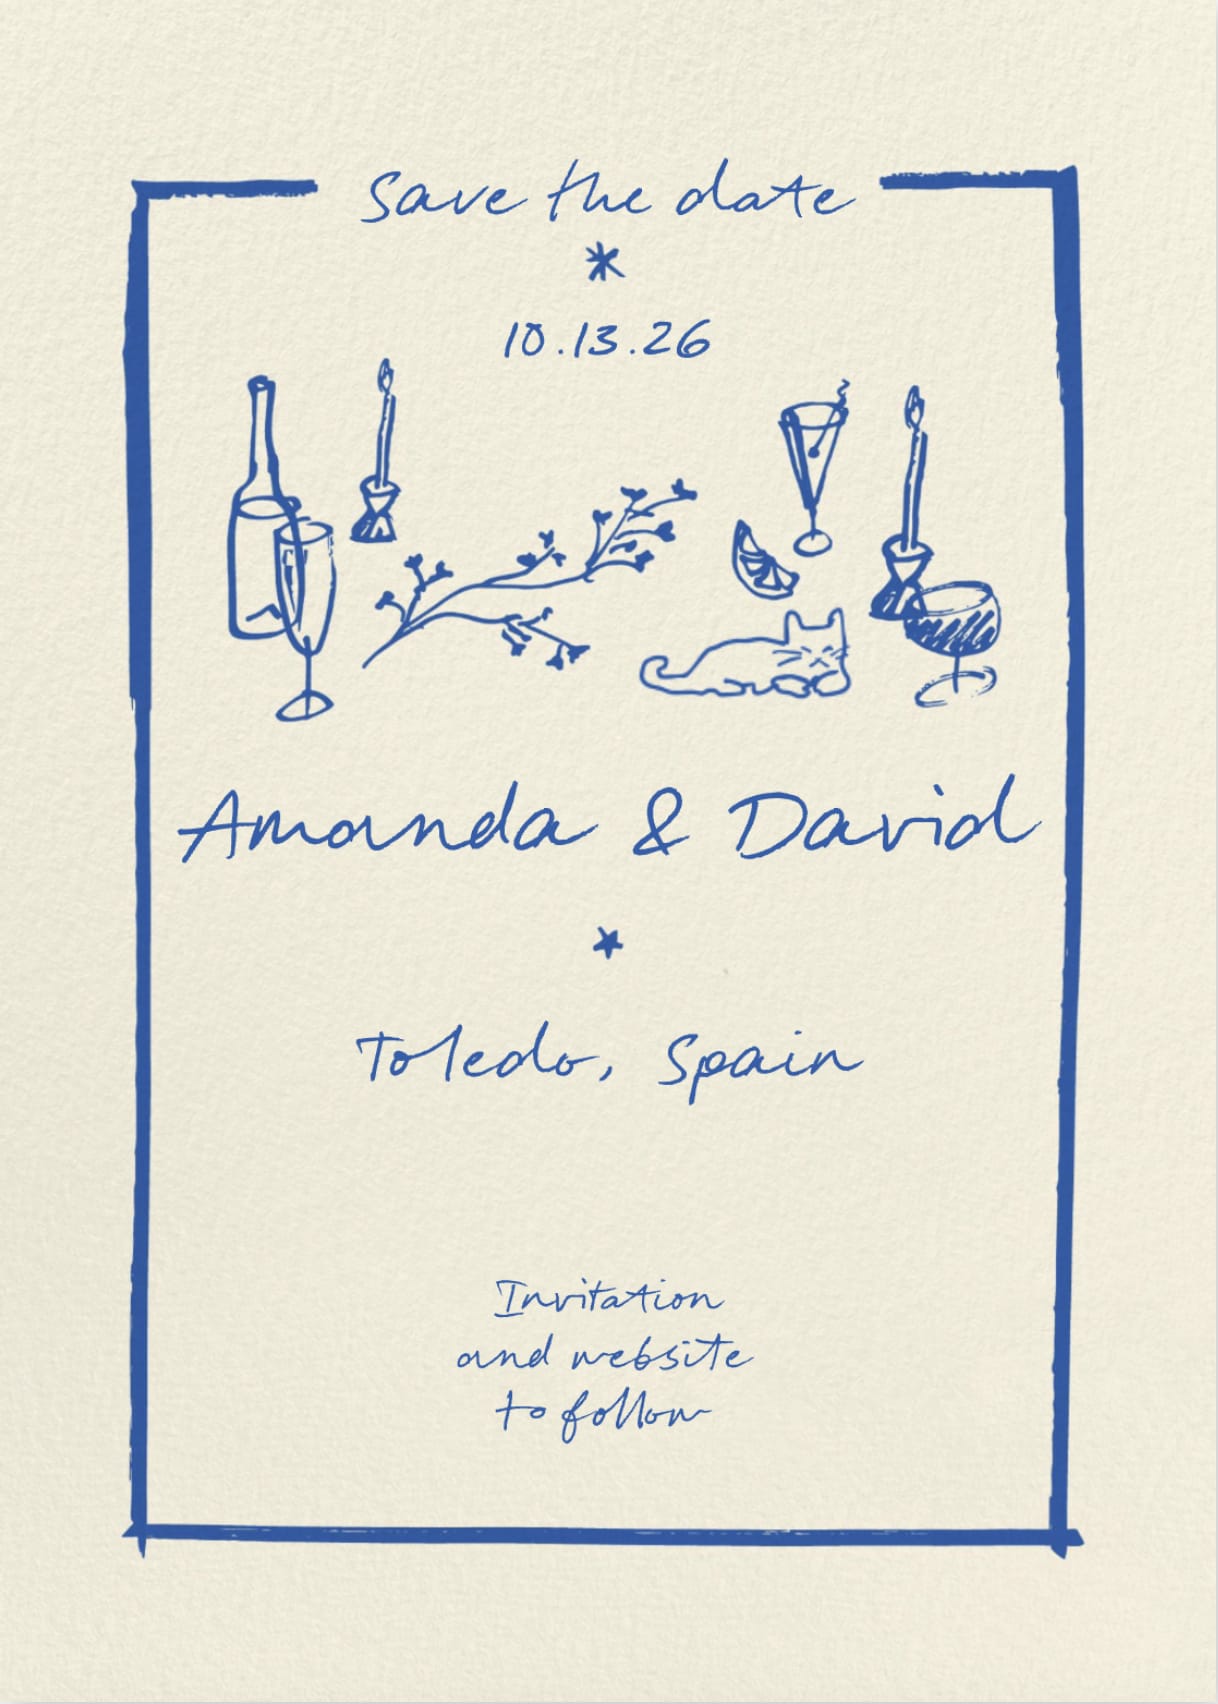 Save the date
10.13.26
Amanda & David
Toledo, Spain
Invitation
and website
to follow